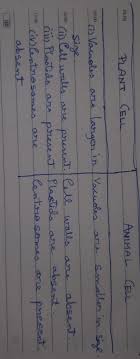 PLANT CELL ANIMAL CELL
(i) Vacuoles are larger in Vacuoles are smaller in size
size
(ii) Cell walls are present. Cell walls are absent.
(iii) Plastids are present Plastids are absent.
(iv) Centrosomes are Centrosomes are present
absent